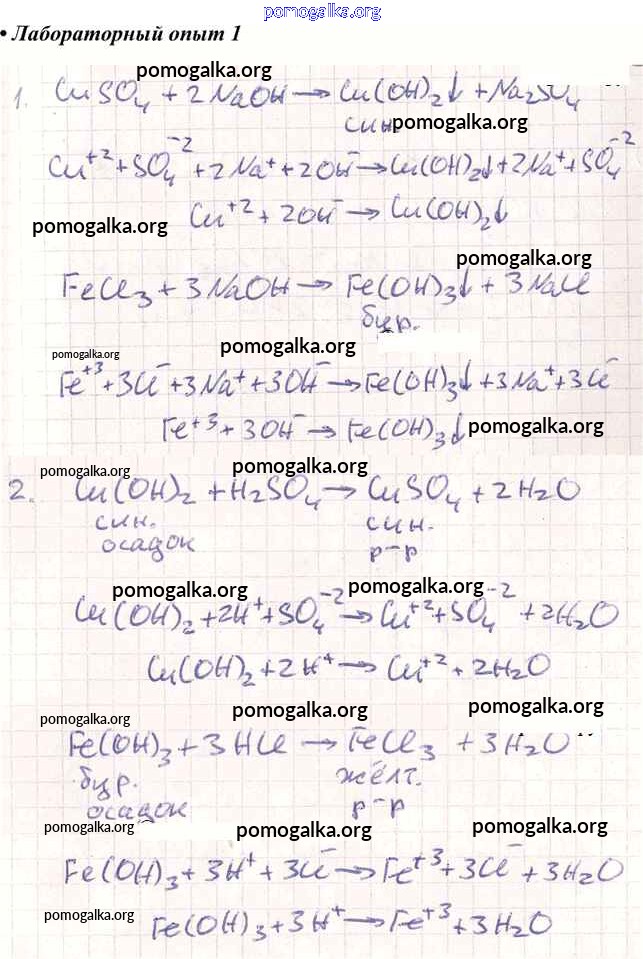 pomogalka.org
• Лабораторный опыт 1
pomogalka.org
1. CuSO₄ + 2NaOH → Cu(OH)₂↓ + Na₂SO₄
син. pomogalka.org
Cu⁺² + SO₄⁻² + 2Na⁺ + 2OH⁻ → Cu(OH)₂↓ + 2Na⁺ + SO₄⁻²
pomogalka.org Cu⁺² + 2OH⁻ → Cu(OH)₂↓
pomogalka.org
FeCl₃ + 3NaOH → Fe(OH)₃↓ + 3NaCl
бур.
pomogalka.org pomogalka.org
Fe⁺³ + 3Cl⁻ + 3Na⁺ + 3OH⁻ → Fe(OH)₃↓ + 3Na⁺ + 3Cl⁻
Fe⁺³ + 3OH⁻ → Fe(OH)₃↓ pomogalka.org
pomogalka.org pomogalka.org
2. Cu(OH)₂ + H₂SO₄ → CuSO₄ + 2H₂O
син. син.
осадок р-р
pomogalka.org pomogalka.org
Cu(OH)₂ + 2H⁺ + SO₄⁻² → Cu⁺² + SO₄⁻² + 2H₂O
Cu(OH)₂ + 2H⁺ → Cu⁺² + 2H₂O
pomogalka.org pomogalka.org pomogalka.org
Fe(OH)₃ + 3HCl → FeCl₃ + 3H₂O
бур. жёлт.
осадок р-р
pomogalka.org pomogalka.org pomogalka.org
Fe(OH)₃ + 3H⁺ + 3Cl⁻ → Fe⁺³ + 3Cl⁻ + 3H₂O
pomogalka.org Fe(OH)₃ + 3H⁺ → Fe⁺³ + 3H₂O